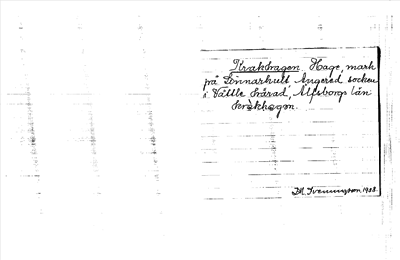 Krakhagen. Hage, mark
på Linnarhult Angered socken
i Vättle härad, Älfsborgs län
kràkhagen.
D.A. Svenningson, 1933.